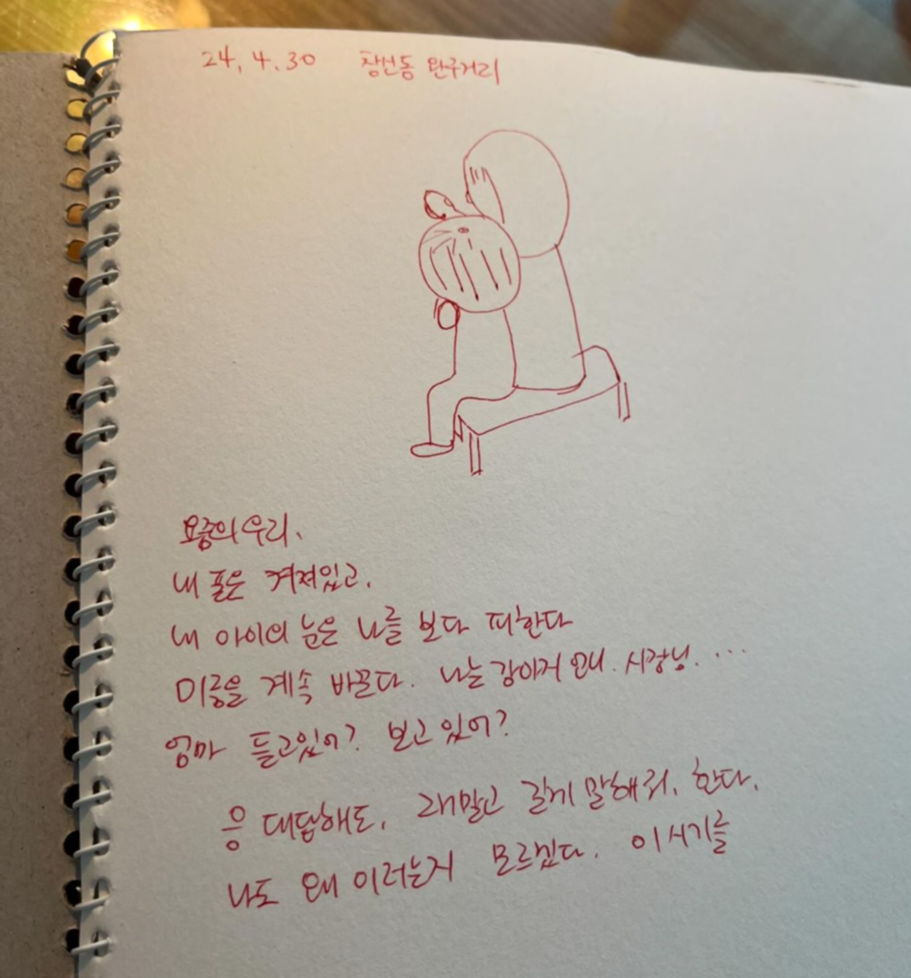 24, 4.30 창신동 완구거리
요즘의 우리.
내 폰은 켜져있고.
내 아이의 눈은 나를 보다 피한다
이름을 계속 바꾼다. 나는 강아지 언니. 사장님. ...
엄마 듣고있어? 보고 있어?
응 대답해도, 그래말고 길게 말해줘, 한다.
나도 왜 이러는지 모르겠다. 이 시기를